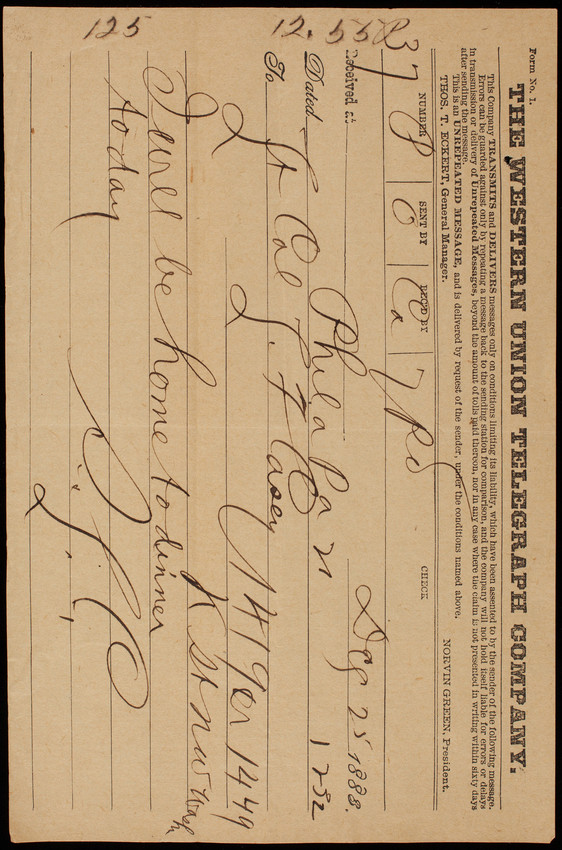 Form No. 1.
THE WESTERN UNION TELEGRAPH COMPANY.
This Company TRANSMITS and DELIVERS messages only on conditions limiting its liability, which have been assented to by the sender of the following message.
Errors can be guarded against only by repeating a message back to the sending station for comparison, and the company will not hold itself liable for errors or delays
in transmission or delivery of Unrepeated Messages, beyond the amount of tolls paid thereon, nor in any case where the claim is not presented in writing within sixty days
after sending the message.
This is an UNREPEATED MESSAGE, and is delivered by request of the sender, under the conditions named above.
THOS. T. ECKERT, General Manager. NORVIN GREEN, President.
NUMBER SENT BY REC'D BY CHECK
37 P O Ca 7
Received at 1888.
Dated Phila Pa 21
To Lt Col T. L. Casey
1419 or 1449
K st NW Wash
I will be home to dinner
today
12.55
125